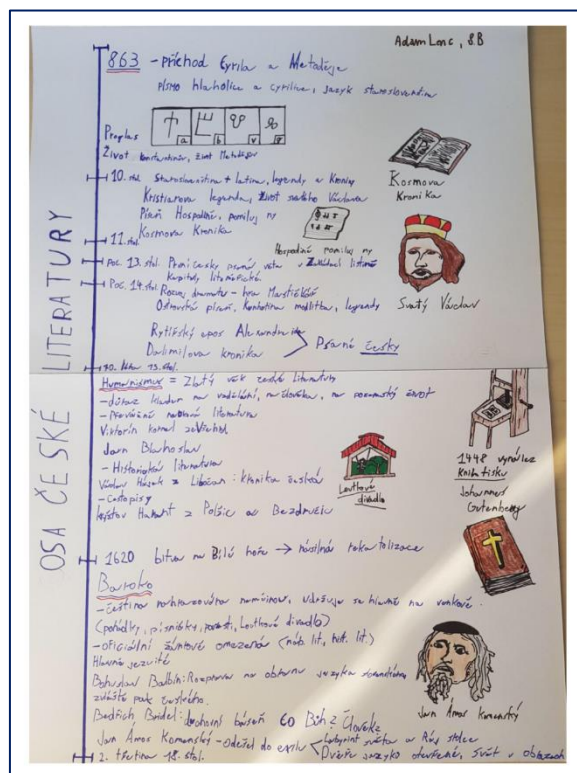 Adam Lonc, 8.B
OSA ČESKÉ LITERATURY
863 - příchod Cyrila a Metoděje
písmo hlaholice a cyrilice, jazyk staroslověnština
Proglas
a b v g
Život Konstantinův, život Metodějův
10. stol. Staroslověnština + latina, legendy a kroniky
Kristianova legenda, život svatého Václava
Píseň Hospodine, pomiluj ny
Kosmova Kronika
11. stol.
Kosmova
Kronika
Hospodine pomiluj ny
Poč. 13. stol. První česky psaná věta v listině
Kapituly litoměřické
Poč. 14. stol. Rozvoj dramatu - hra Mastičkář
Ostrovská píseň, Kunhutina modlitba, legendy
Svatý Václav
Rytířský epos Alexandreida
Dalimilova kronika
Psané česky
70. léta 15. stol.
Humanismus = Zlatý věk české literatury
- důraz kladen na vzdělání, na člověka, na pozemský život
- převážně naučná literatura
Viktorin Kornel ze Všehrd
Jan Blahoslav
- Historická literatura
Václav Hájek z Libočan: Kronika česká
- Cestopisy
Kryštof Harant z Polžic a Bezdružic
Loutkové
divadlo
1448 vynález
Knihtisku
Johannes
Gutenberg
1620 bitva na Bílé hoře → násilná rekatolizace
Baroko
- čeština, udržuje se hlavně na venkově.
(pohádky, písničky, pověsti, Loutkové divadlo)
- oficiální žánrově omezená (náb. lit.,  lit.)
Hlavně jezuité
Bohuslav Balbín: Rozprava na obranu jazyka slovanského
zvláště pak českého.
Bedřich Bridel: duchovní báseň Co Bůh? Člověk?
Jan Ámos Komenský - odešel do exilu
Labyrint světa a Ráj srdce
Dvéře jazyků otevřené, Svět v obrazech
Jan Ámos Komenský
2. třetina 18. stol.